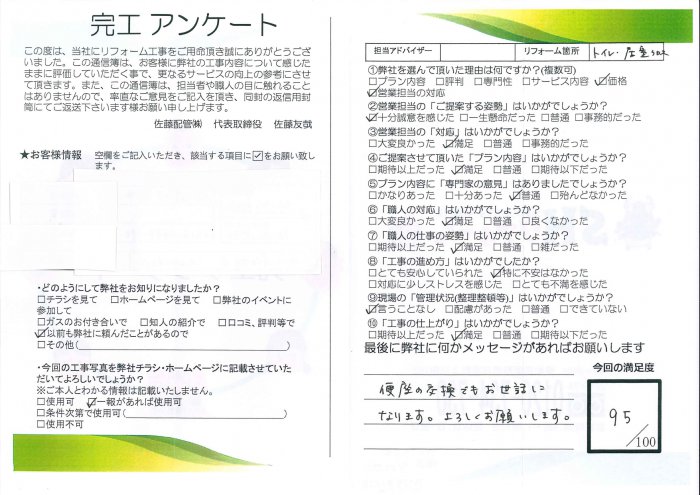 完工 アンケート
この度は、当社にリフォーム工事をご用命頂き誠にありがとうござ
いました。この通信簿は、お客様に弊社の工事内容について感じた
ままに評価していただく事で、更なるサービスの向上の参考にさせ
て頂きます。また、この通信簿は、担当者や職人の目に触れること
はありませんので、率直なご意見をご記入を頂き、同封の返信用封
筒にてご返送下さいます様お願い申し上げます。
佐藤配管㈱ 代表取締役 佐藤友哉
★お客様情報 空欄をご記入いただき、該当する項目に☑をお願い致し
ます。
・どのようにして弊社をお知りになりましたか?
□チラシを見て □ホームページを見て □弊社のイベントに
参加して
□ガスのお付き合いで □知人の紹介で □口コミ、評判等で
☑以前も弊社に頼んだことがあるので
□その他( )
・今回の工事写真を弊社チラシ・ホームページに記載させていた
だいてよろしいでしょうか?
※ご本人とわかる情報は記載いたしません。
□使用可 ☑一報があれば使用可
□条件次第で使用可( )
□使用不可
担当アドバイザー リフォーム箇所 トイレ・便座
①弊社を選んで頂いた理由は何ですか?(複数可)
□プラン内容 □評判 □専門性 □サービス内容 ☑価格
☑営業担当の対応
②営業担当の「ご提案する姿勢」はいかがでしょうか?
☑十分誠意を感じた □一生懸命だった □普通 □事務的だった
③営業担当の「対応」はいかがでしょうか?
□大変良かった ☑満足 □普通 □事務的だった
④ご提案させて頂いた「プラン内容」はいかがでしょうか?
□期待以上だった ☑満足 □普通 □期待以下だった
⑤プラン内容に「専門家の意見」はありましたでしょうか?
□かなりあった □十分あった ☑普通 □殆んどなかった
⑥「職人の対応」はいかがでしょうか?
□大変良かった ☑満足 □普通 □良くなかった
⑦「職人の仕事の姿勢」はいかがでしょうか?
□期待以上だった ☑満足 □普通 □雑だった
⑧「工事の進め方」はいかがでしたか?
□とても安心していられた ☑特に不安はなかった
□対応に少しストレスを感じた □とても不満を感じた
⑨現場の「管理状況(整理整頓等)」はいかがでしょうか?
☑言うことなし □配慮があった □普通 □できていない
⑩「工事の仕上がり」はいかがでしょうか?
□期待以上だった ☑満足 □普通 □期待以下だった
最後に弊社に何かメッセージがあればお願いします
今回の満足度
便座の交換でもお世話に
なります。よろしくお願いします。
95
/100